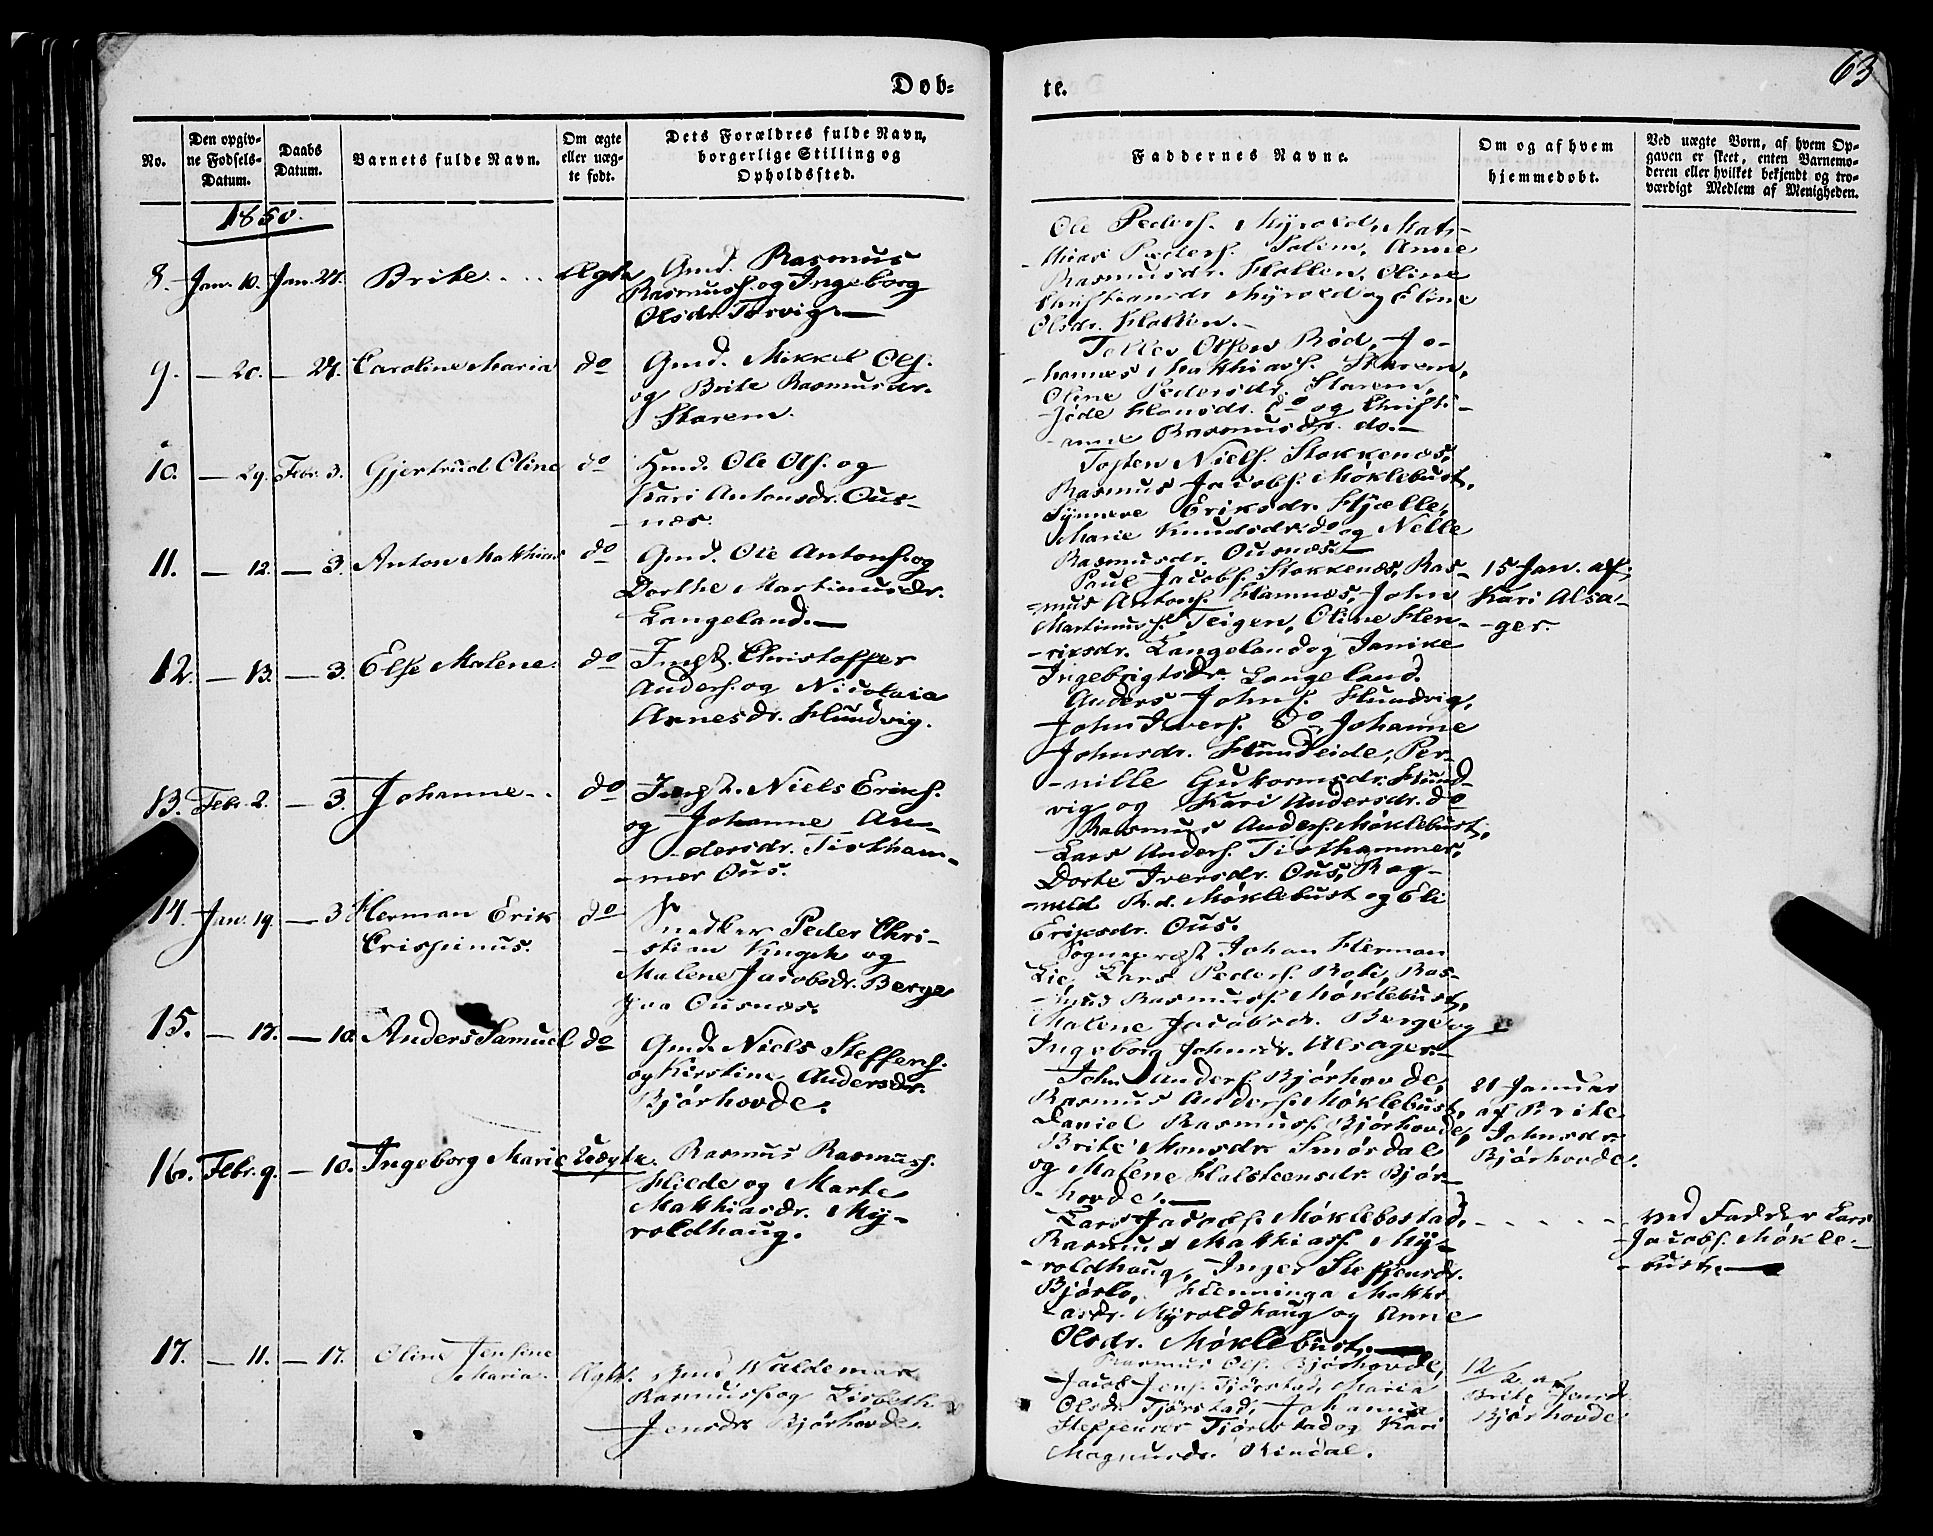 Døb-
te.
63
No.
Den opgiv-
ne Fødsels-
Datum.
Daabs
Datum.
Barnets fulde Navn.
Om ægte
eller uæg-
te født.
Dets Forældres fulde Navn,
borgerlige Stilling og
Opholdssted.
Faddernes Navne.
Om og af hvem
hjemmedøbt.
Ved uægte Børn, af hvem Op-
gaven er skeet, enten Barnemo-
deren eller hvilket bekjendt og tro-
værdigt Medlem af Menigheden.
1850.
8. Jan. 10. Jan. 27. Brite. Ægte
Gmd. Rasmus
Rasmuss. og Ingeborg
Olsdr. Torvig.
Ole Peders. Myrold, Mat-
hias Peders. Solem, Anne
Rasmusdr. Hatlen, Oline
Christiansdr Myrold og Eline
Olsdr. Hatlen.
9. — 20. — 27. Caroline Maria do
Gmd. Mikkel Ols.
og Brite Rasmusdr.
Starem.
Tollev Olsen Rød, Jo-
hannes Matthiass. Starem,
Oline Pedersdr. Starem,
Hansdr. do og Christi-
anne Rasmusdr. do.
10. — 29. Febr. 3. Gjertrud Oline do
Hmd. Ole Ols. og
Kari Antonsdr. Ous-
næs.
Tosten Niels. Stokkenæs,
Rasmus Jacobs. Møklebust,
Synneve Eriksdr. Hjelle,
Marie Knudsdr. do og Nelle
Rasmusdr. Ousnæs.
11. — 12. — 3. Anton Matthias do
Gmd. Ole Antons. og
Dorthe Martinusdr.
Langeland.
Paul Jacobs. Stokkenæs, Ras-
mus Antons. Hamnæs, John
Martinus. Teigen, Oline Hen-
riksdr. Langeland og Janike
Ingebrigtsdr. Langeland.
15 Jan. af
Kari Alsa-
ger.
12. — 13. — 3. Else Malene. do
Christoffer
Anders. og Nicolaia
Arnesdr. Hundvig.
Anders Johns. Hundvig,
John Ivers. do, Johanne
Johnsdr. Hundeide, Per-
nille Guttormsdr. Hund-
vig og Kari Andersdr. do
13. Febr. 2. — 3. Johanne. do
Niels Eriks.
og Johanne An-
dersdr. Tistham-
mer Ous.
Rasmus Anders. Møklebust,
Lars Anders. Tisthammer,
Dorte Iversdr. Ous, Rag-
nild R.d. Møklebust og Eli
Eriksdr. Ous.
14. Jan. 19. — 3 Herman Erik
Crispinus. do
Snedker Peder Chri-
stian Kingck og
Malene Jacobsdr. Berge
paa Ousnæs.
Sognepræst Johan Herman
Lie, Lars Peders. Roti, Ras-
mus Rasmuss. Møklebust,
Malene Jacobsdr. Berge og
Ingeborg Johnsdr. Alsager.
15. — 17. — 10. Anders Samuel do
Gmd. Niels Steffens.
og Kirstine Andersdr.
Bjørhovde.
John Anders. Bjørhovde,
Rasmus Anders. Møklebust,
Daniel Rasmuss. Bjørhovde,
Brite Monsdr. Smørdal
og Malene Halsteensdr. Bjør-
hovde.
21 Januar
af Brite
Johnsdr.
Bjørhovde.
16. Febr. 9. — 10. Ingeborg Marie Uægte.
Rasmus Rasmuss.
Hilde og Marte
Matthiasdr. My-
roldhaug.
Lars Jacobs. Møklebostad,
Rasmus Matthias. My-
roldhaug, Inger Steffensdr.
Bjørlo, Henninga Matthi-
asdr. Myroldhaug og Anne
Olsdr. Møklebust.
ved Fadder Lars
Jacobs. Møkle-
bust.
17. — 11. — 17. Oline Jensine
Maria. Ægte.
Gmd Waldemar
Rasmuss. og Lisbeth
Jensdr. Bjørhovde.
Rasmus Ols. Bjørhovde,
Jacob Jens. Tjørstad, Maria
Olsdr Tjørstad, Johanna
Steffensdr Tjørstad og Kari
Magnusdr. Rindal.
12/2 af
Brite Jensdr
Bjørhovde